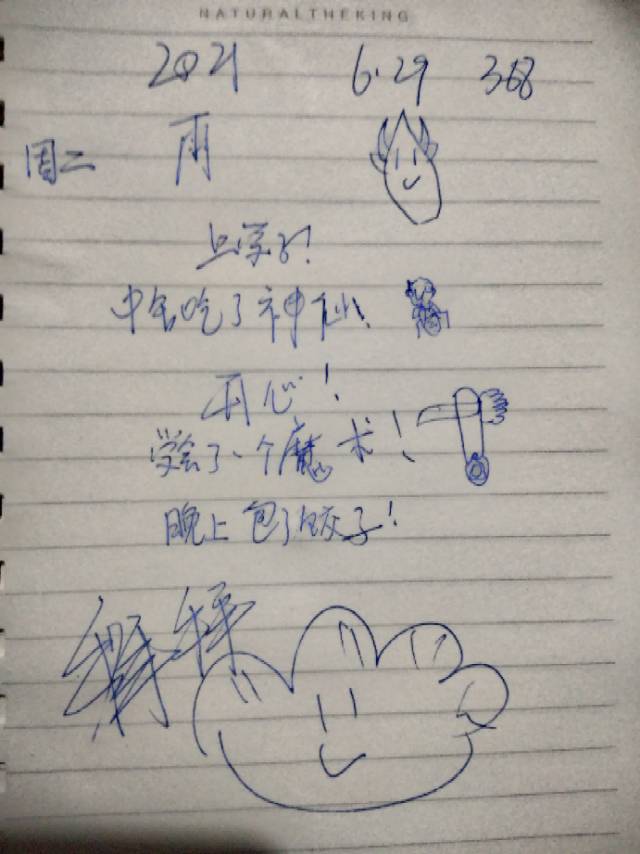 NATURALTHEKING
2021 6.29 368
周二 雨
上学了!
中午吃了神仙!
开心!
学会了一个魔术!
晚上包了饺子!